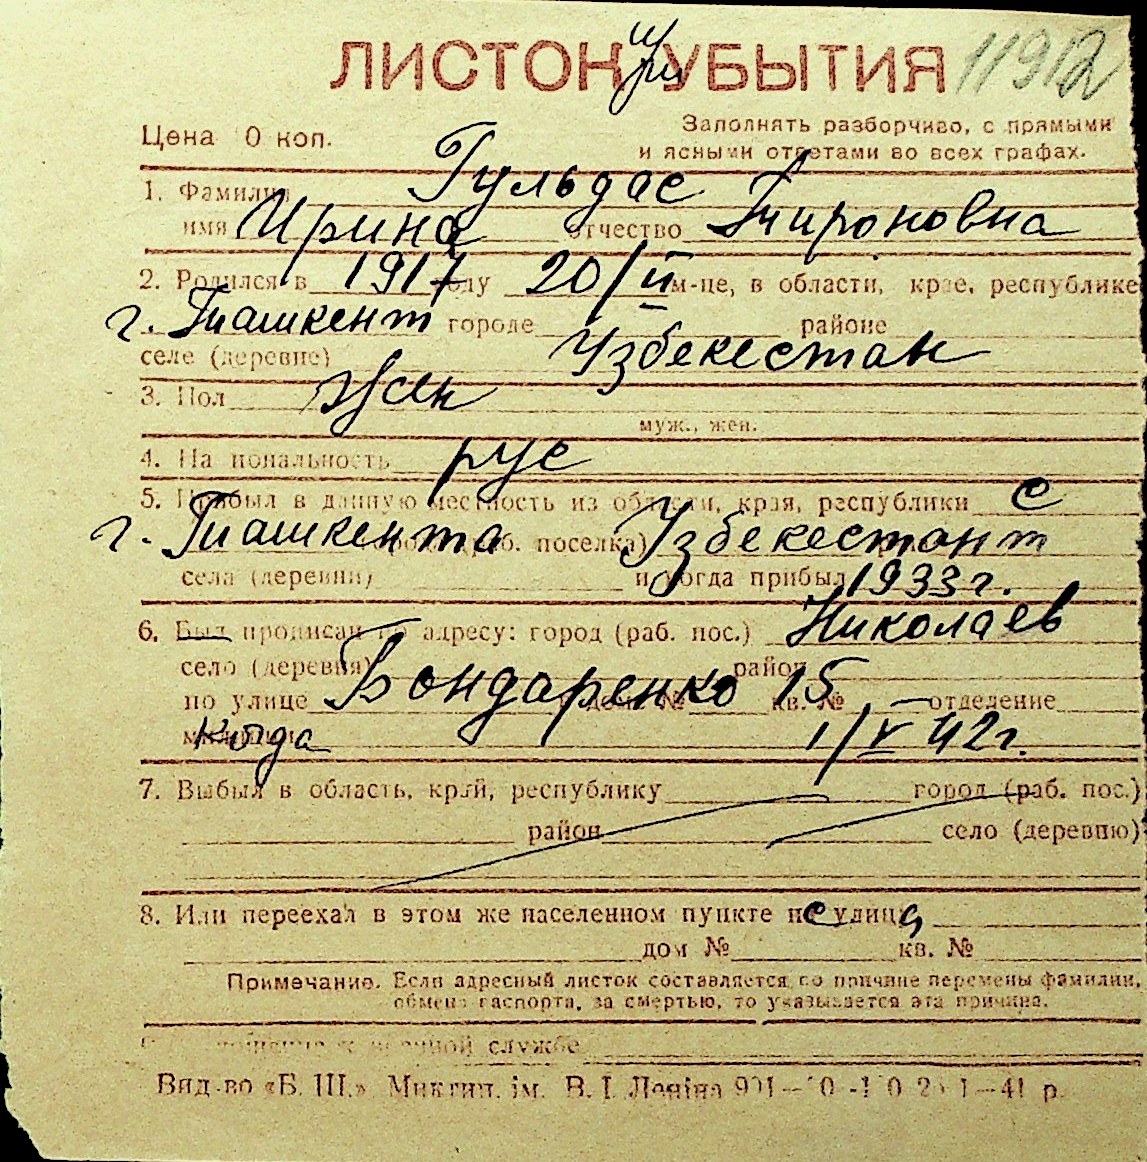 ЛИСТОК УБЫТИЯ 11912
при
Цена 0 коп. Заполнять разборчиво, с прямыми
и ясными ответами во всех графах.
1. Фамилия Гульдас
имя Ирина отчество Тироновна
2. Родился в 1917 году 20/II м-це, в области, крае, республике
г. Ташкент городе районе
селе (деревне) Узбекестан
3. Пол жен
муж., жен.
4. Национальность рус
5. Прибыл в данную местность из области, края, республики с
г. Ташкента города (раб. поселка) Узбекестант
села (деревни) и когда прибыл 1933 г.
6. Был прописан по адресу: город (раб. пос.) Николаев
село (деревня) район
по улице Бондаренко 15 дом № кв. № отделение
милиции когда 1/V-42 г.
7. Выбыл в область, край, республику город (раб. пос.)
район село (деревню)
8. Или переехал в этом же населенном пункте не улица
дом № кв. №
Примечание. Если адресный листок составляется по причине перемены фамилии,
обмена паспорта, за смертью, то указывается эта причина.
военной службе
Вид-во «Б. Ш.» Микгип. ім. В. І. Леніна 41 р.